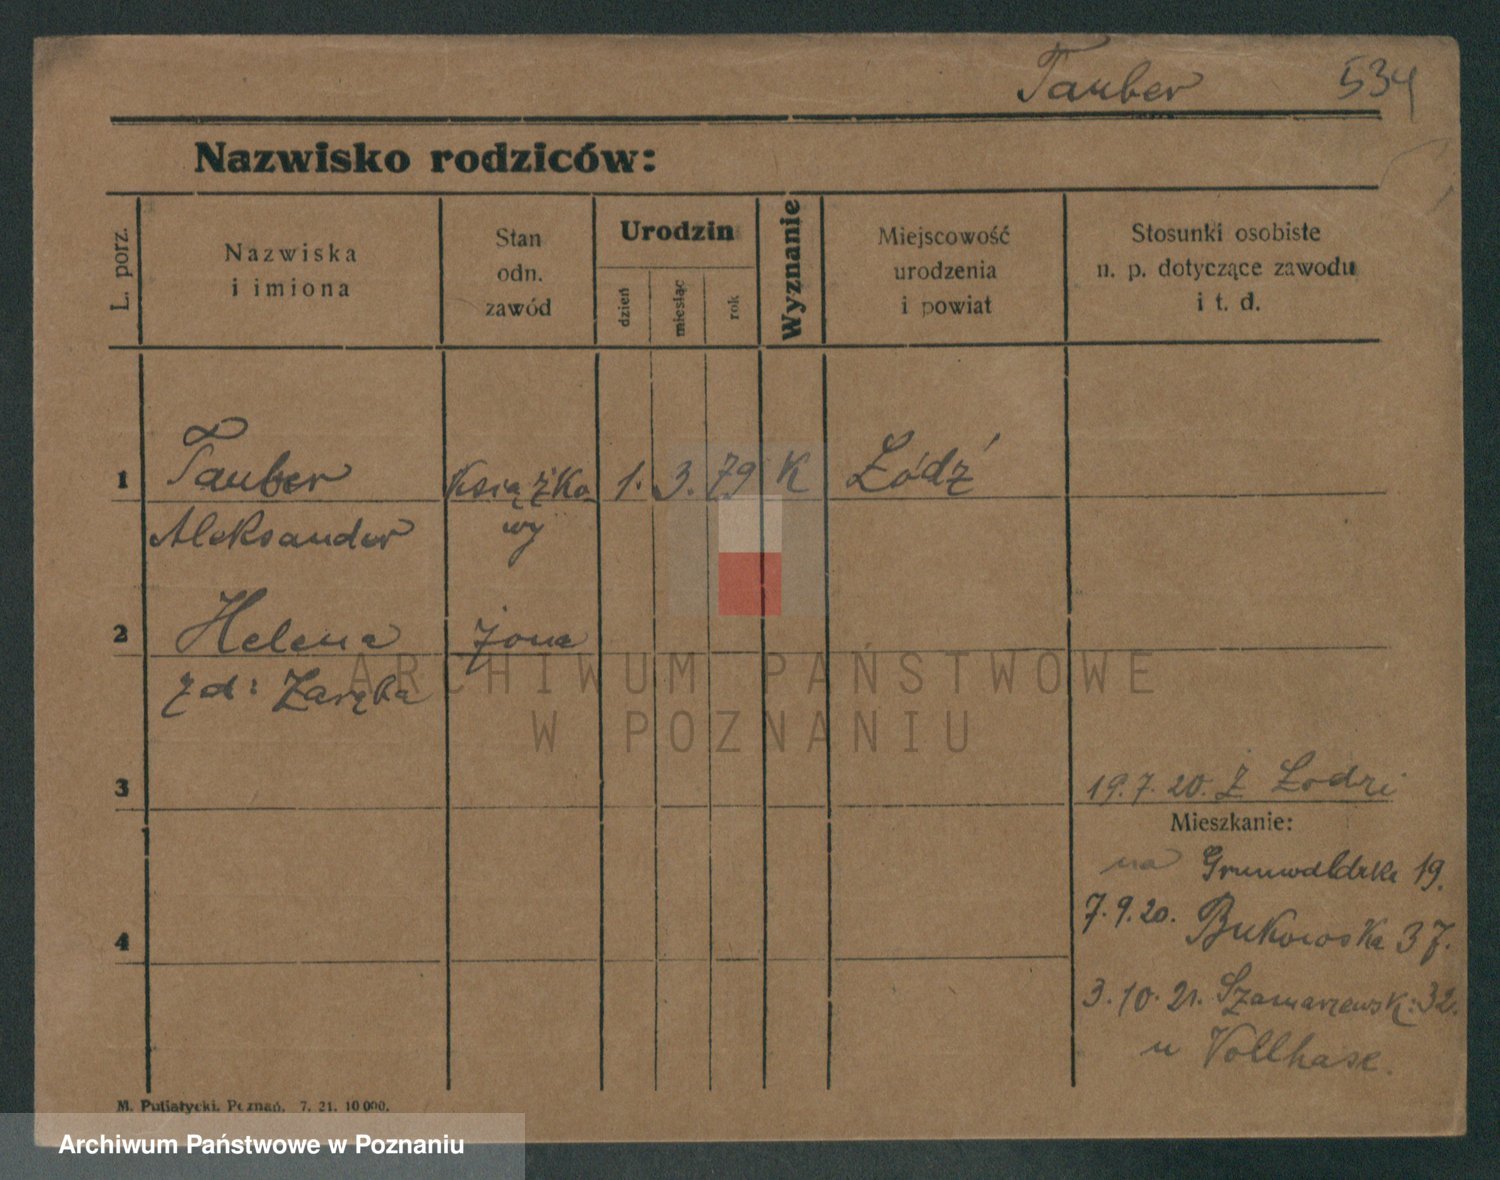 Tauber 534
Nazwisko rodziców:
L. porz.
Nazwiska
i imiona
Stan
odn.
zawód
Urodzin
dzień
miesiąc
rok
Wyznanie
Miejscowość
urodzenia
i powiat
Stosunki osobiste
n. p. dotyczące zawodu
i t. d.
1 Tauber Książko 1. 3. 79 K Łódź
Aleksander wy
2 Helena żona
zd: Zaręba
ARCHIWUM PAŃSTWOWE
W POZNANIU
3
19.7.20. Z Łodzi
Mieszkanie:
na Grunwaldzka 19.
7.9.20. Bukowska 37.
4
3.10.21. Szamarzewsk: 32.
u Vollhase.
M. Putiatycki, Poznań, 7. 21. 10 000.
Archiwum Państwowe w Poznaniu